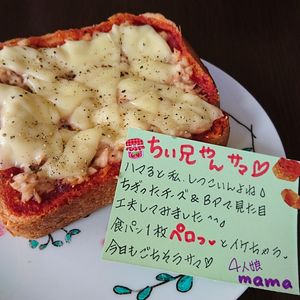 ちぃ兄やんサマ♡
ハマると私、しつこいんよね♪
ちぎったチーズ&BPで見た目
工夫してみました^^♪
食パン1枚ペロっ〜とイケちゃう。
今日もごちそうサマ♡
4人娘
mama